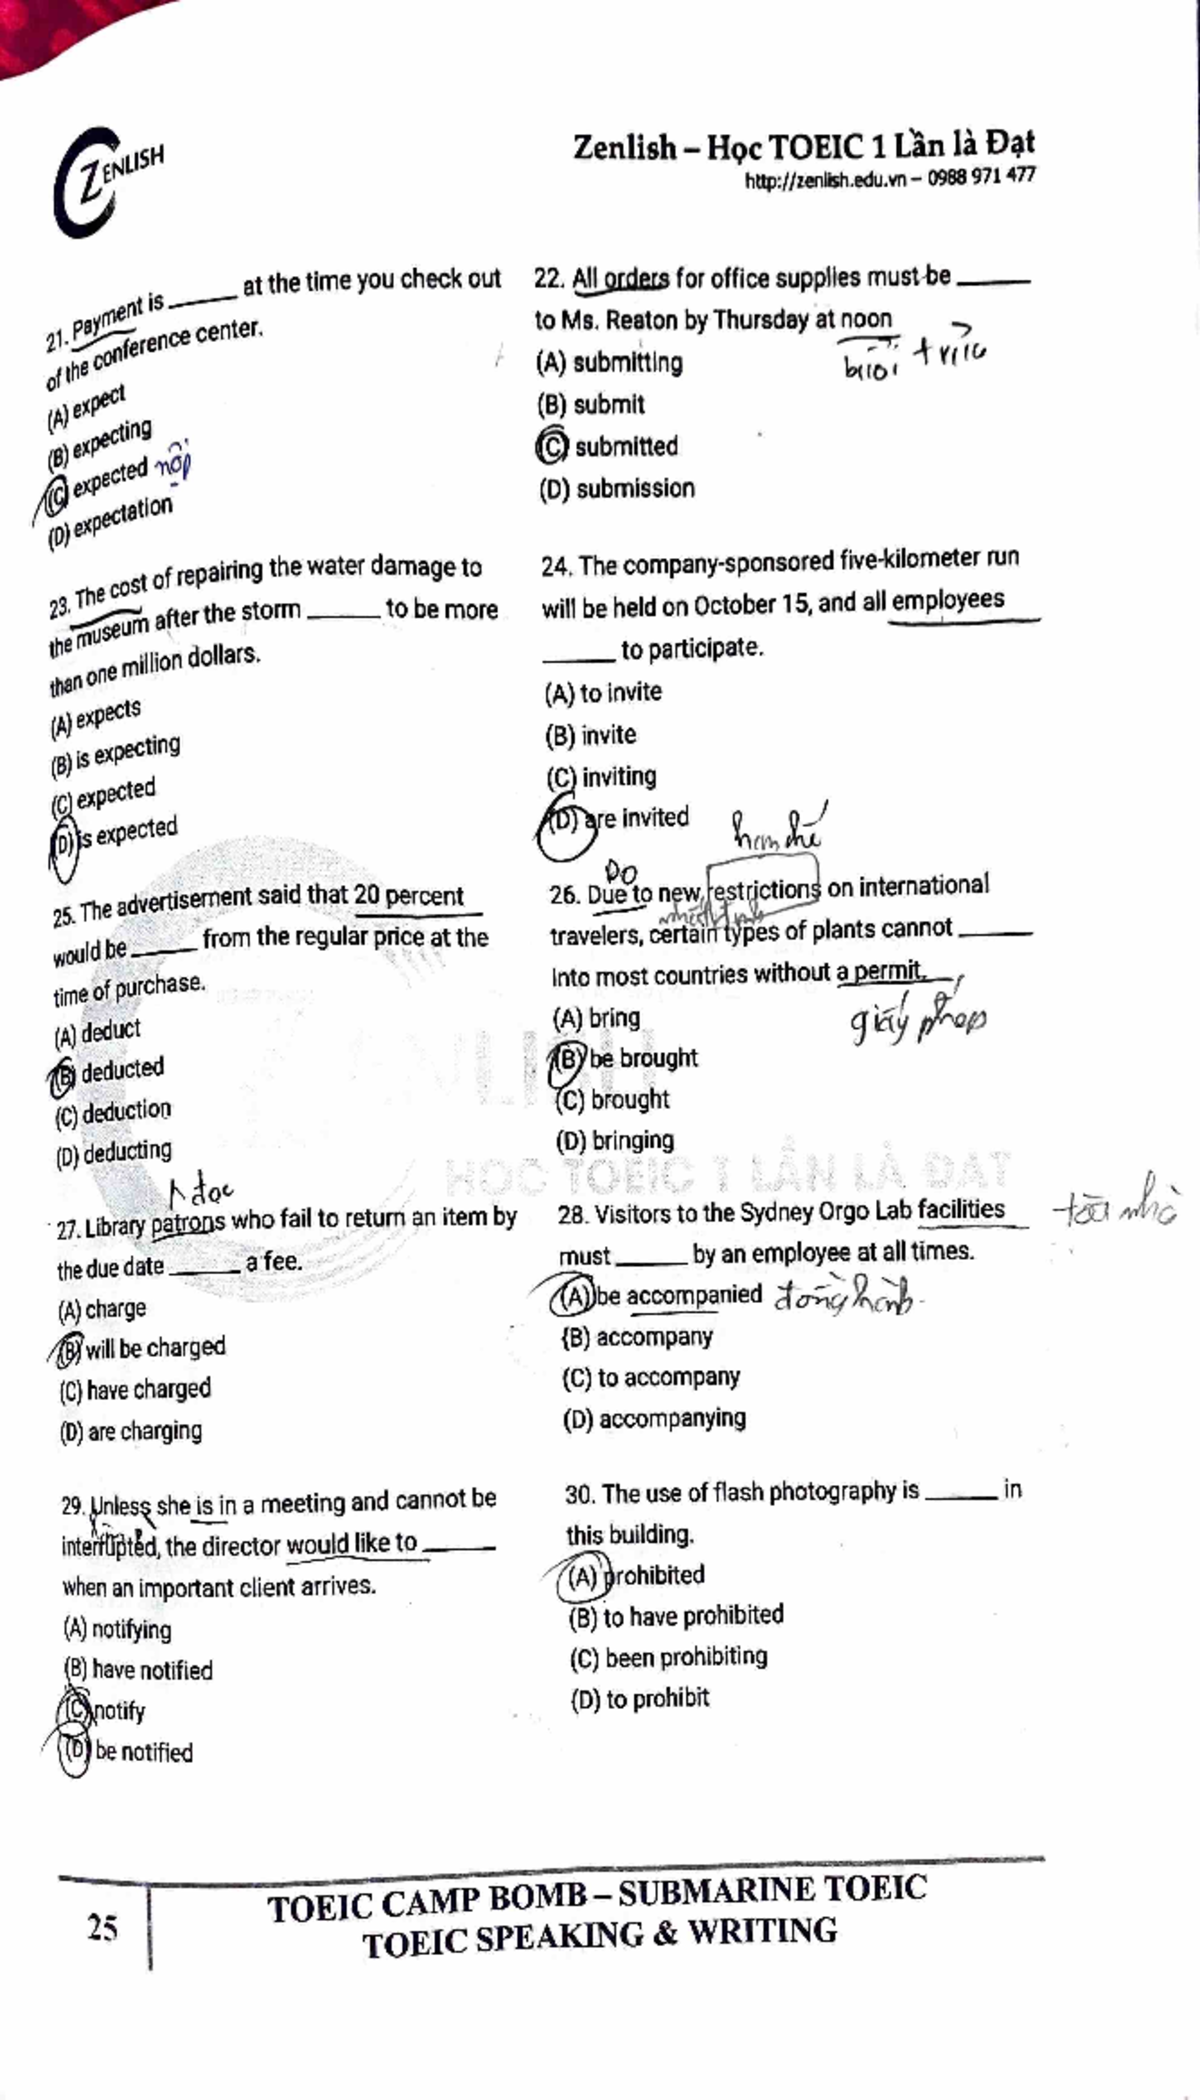 ZENLISH
Zenlish – Học TOEIC 1 Lần là Đạt
http://zenlish.edu.vn – 0988 971 477
21. Payment is ______ at the time you check out
of the conference center.
(A) expect
(B) expecting
(C) expected nộp
(D) expectation
22. All orders for office supplies must be ______
to Ms. Reaton by Thursday at noon
buổi trưa
(A) submitting
(B) submit
(C) submitted
(D) submission
23. The cost of repairing the water damage to
the museum after the storm ______ to be more
than one million dollars.
(A) expects
(B) is expecting
(C) expected
(D) is expected
24. The company-sponsored five-kilometer run
will be held on October 15, and all employees
______ to participate.
(A) to invite
(B) invite
(C) inviting
(D) are invited
25. The advertisement said that 20 percent
would be ______ from the regular price at the
time of purchase.
(A) deduct
(B) deducted
(C) deduction
(D) deducting
Do
hạn chế
26. Due to new restrictions on international
travelers, certain types of plants cannot ______
into most countries without a permit.
giấy phép
(A) bring
(B) be brought
(C) brought
(D) bringing
HỌC TOEIC 1 LẦN LÀ ĐẠT
đọc
27. Library patrons who fail to return an item by
the due date ______ a fee.
(A) charge
(B) will be charged
(C) have charged
(D) are charging
28. Visitors to the Sydney Orgo Lab facilities
tòa nhà
must ______ by an employee at all times.
(A) be accompanied đồng hành
(B) accompany
(C) to accompany
(D) accompanying
29. Unless she is in a meeting and cannot be
interrupted, the director would like to ______
when an important client arrives.
(A) notifying
(B) have notified
(C) notify
(D) be notified
30. The use of flash photography is ______ in
this building.
(A) prohibited
(B) to have prohibited
(C) been prohibiting
(D) to prohibit
25
TOEIC CAMP BOMB – SUBMARINE TOEIC
TOEIC SPEAKING & WRITING